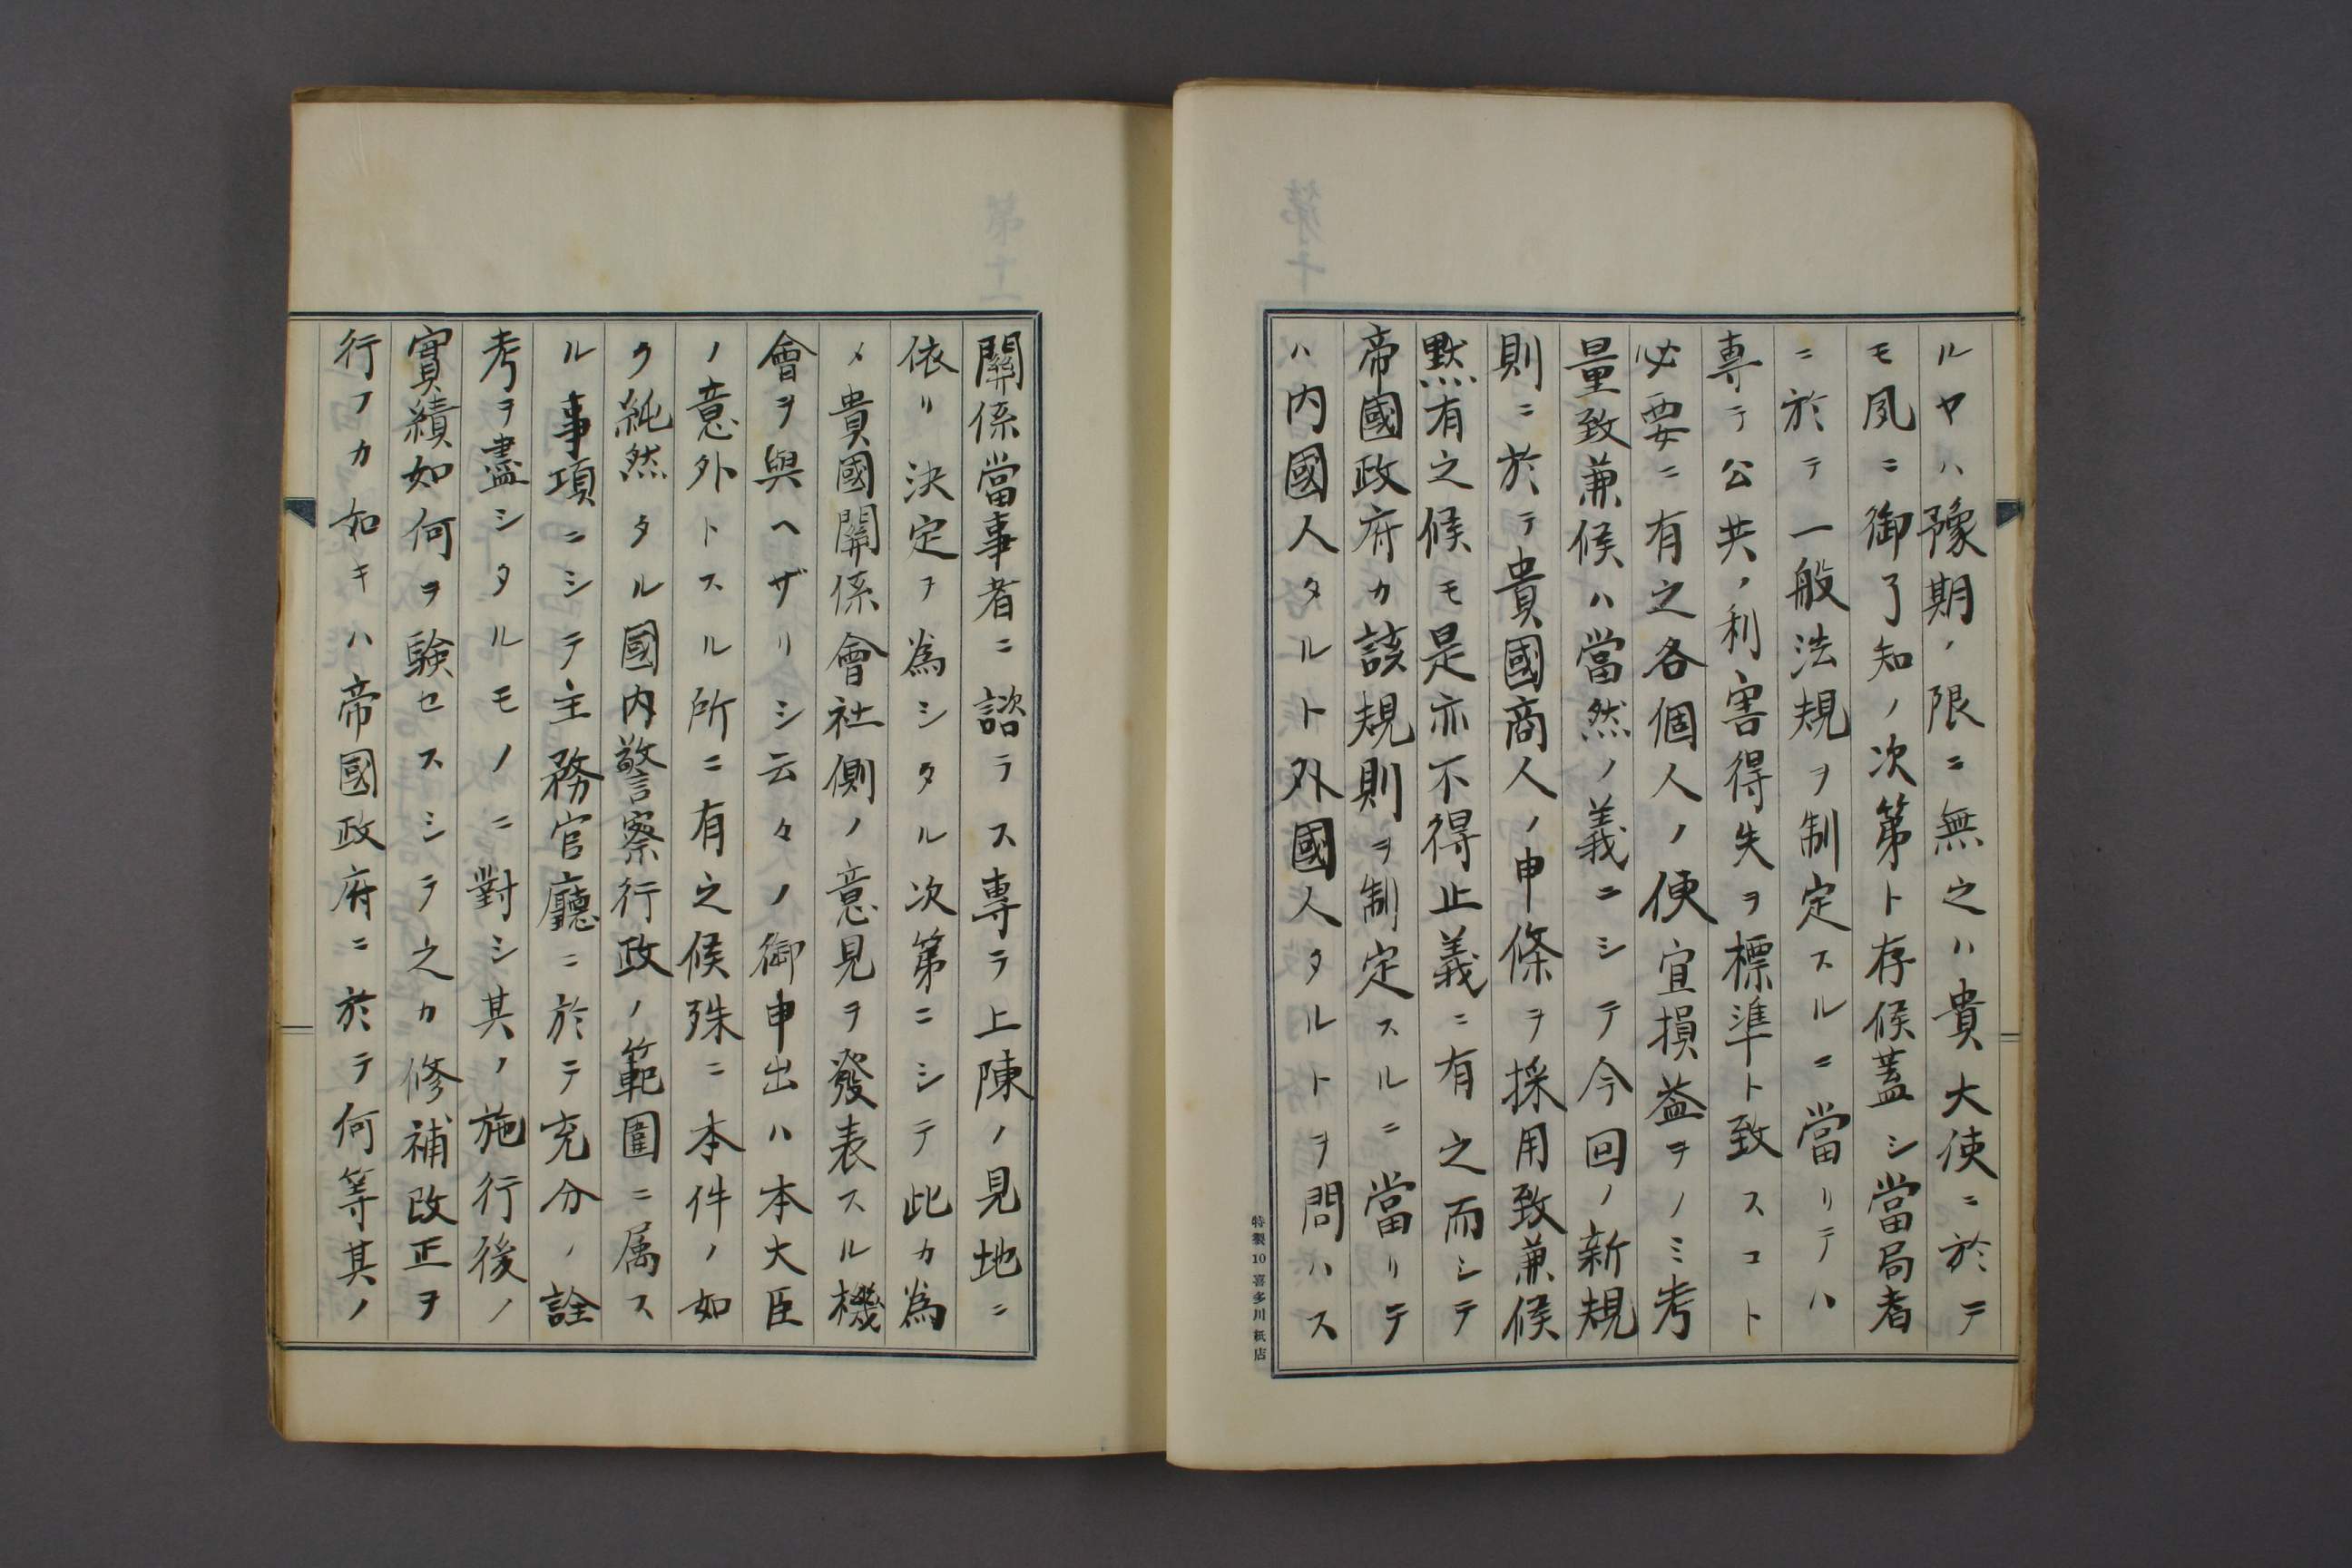 ルヤハ豫期ノ限ニ無之ハ貴大使ニ於テ
モ夙ニ御了知ノ次第ト存候蓋シ當局者
ニ於テ一般法規ヲ制定スルニ當リテハ
専ラ公共ノ利害得失ヲ標準ト致スコト
必要ニ有之各個人ノ便宜損益ヲノミ考
量致兼候ハ當然ノ義ニシテ今回ノ新規
則ニ於テ貴國商人ノ申條ヲ採用致兼候
黙有之候モ是亦不得止義ニ有之而シテ
帝國政府カ該規則ヲ制定スルニ當リテ
ハ内國人タルト外國人タルトヲ問ハス
特製10喜多川紙店
關係當事者ニ諮ラス専ラ上陳ノ見地ニ
依リ決定ヲ為シタル次第ニシテ此カ為
メ貴國關係會社側ノ意見ヲ發表スル機
會ヲ與ヘザリシ云々ノ御申出ハ本大臣
ノ意外トスル所ニ有之候殊ニ本件ノ如
ク純然タル國内警察行政ノ範圍ニ属ス
ル事項ニシテ主務官廳ニ於テ充分ノ詮
考ヲ盡シタルモノニ對シ其ノ施行後ノ
實績如何ヲ験セスシテ之カ修補改正ヲ
行フカ如キハ帝國政府ニ於テ何等其ノ